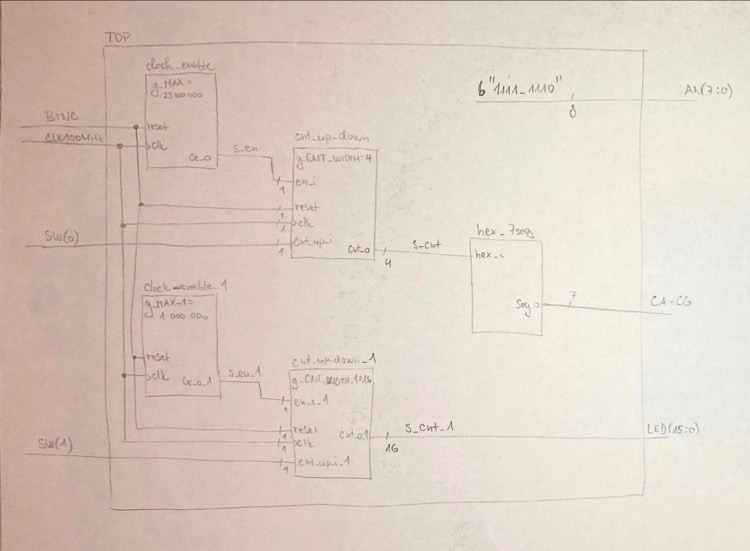 TOP
clock_enable
g_MAX=
25 000 000
reset
clk
ce_o
BTNC
CLK100MHZ
s_en
cnt_up_down
g_CNT_WIDTH=4
1
en_i
reset
1
clk
1
cnt_up_i
1
cnt_o
SW(0)
s_cnt
4
hex_7seg
hex_i
seg_o
7
CA-CG
6"1111_1110"
8
AN(7:0)
clock_enable_1
g_MAX_1=
1 000 000
reset
clk
ce_o_1
s_en_1
cnt_up_down_1
g_CNT_WIDTH_1=16
1
en_i_1
reset
1
clk
1
cnt_up_i_1
1
cnt_o_1
SW(1)
s_cnt_1
16
LED(15:0)